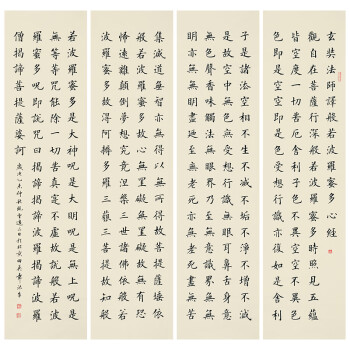 玄奘法師譯般若波羅蜜多心經
觀自在菩薩行深般若波羅蜜多時照見五蘊
皆空度一切苦厄舍利子色不異空空不異色
色即是空空即是色受想行識亦復如是舍利
子是諸法空相不生不滅不垢不淨不增不減
是故空中無色無受想行識無眼耳鼻舌身意
無色聲香味觸法無眼界乃至無意識界無無
明亦無無明盡乃至無老死亦無老死盡無苦
集滅道無智亦無得以無所得故菩提薩埵依
般若波羅蜜多故心無罣礙無罣礙故無有恐
怖遠離顛倒夢想究竟涅槃三世諸佛依般若
波羅蜜多故得阿耨多羅三藐三菩提故知般
若波羅蜜多是大神呪是大明呪是無上呪是
無等等呪能除一切苦真實不虛故說般若波
羅蜜多呪即說呪曰揭諦揭諦波羅揭諦波羅
僧揭諦菩提薩婆訶